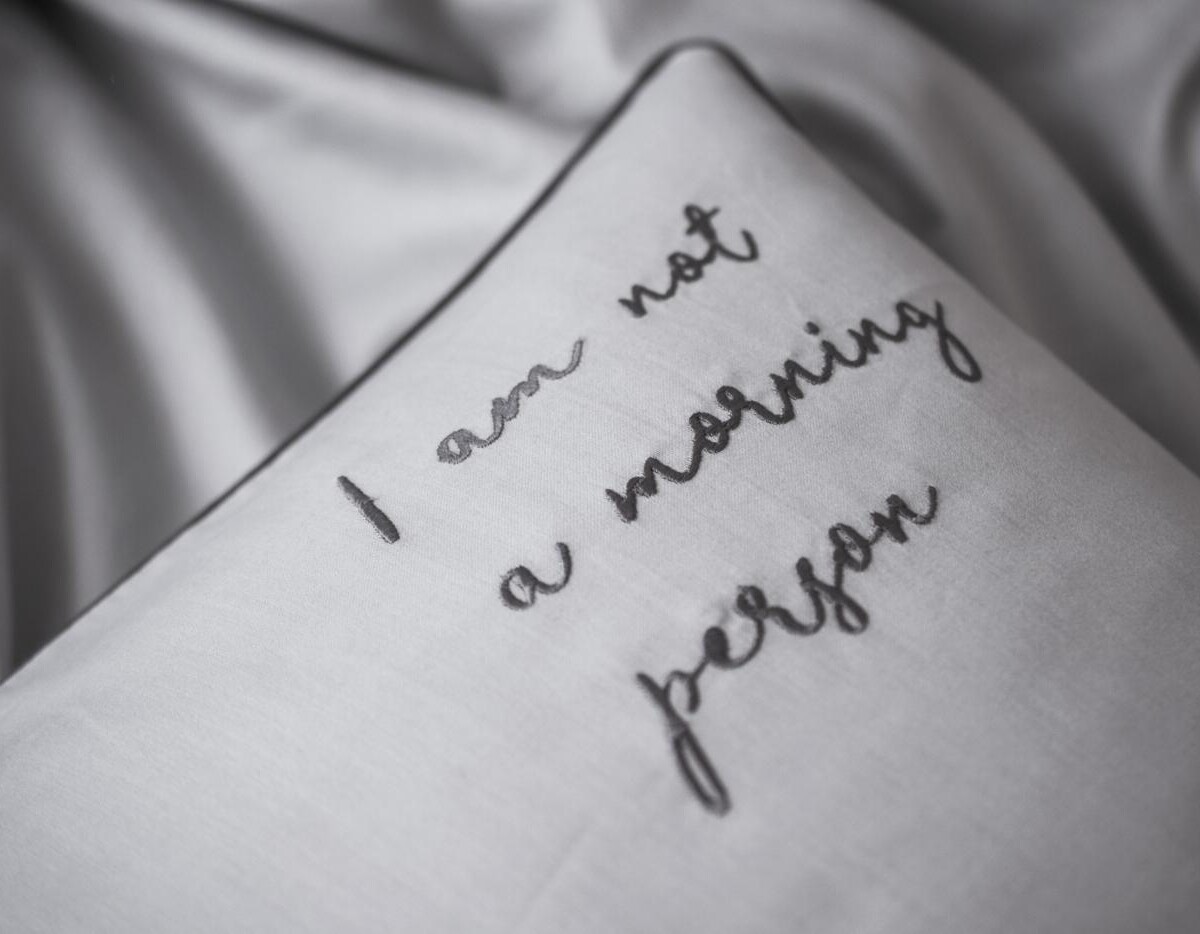 I am not
a morning
person